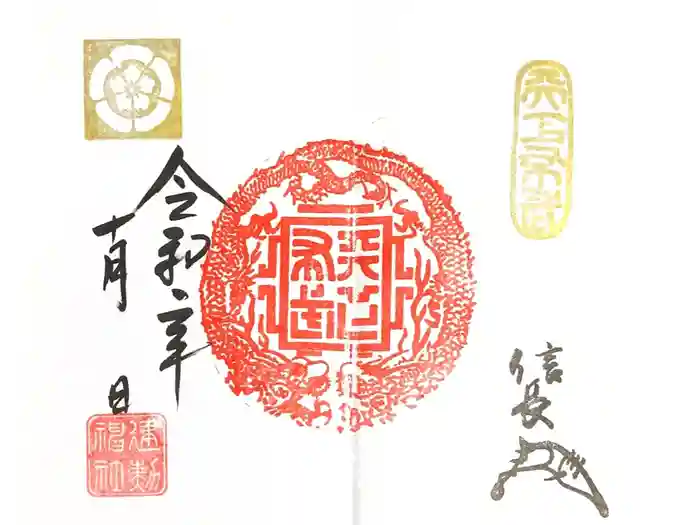 天下布武
信長
天下布武
令和二年
十月 日
建勲福社